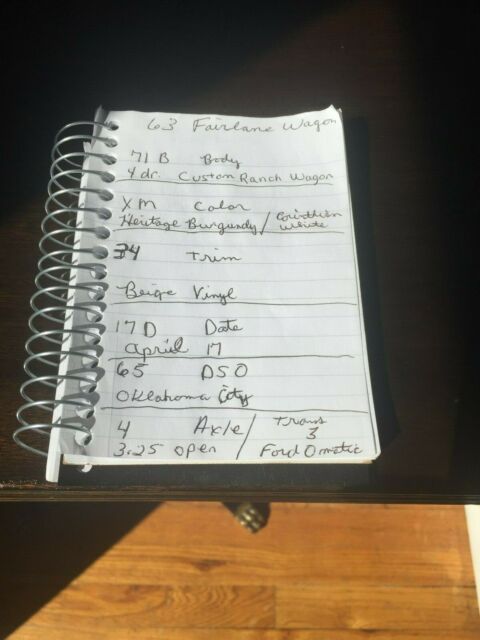 63 Fairlane Wagon
71 B Body
4 dr. Custom Ranch Wagon
X M Color
Heritage Burgundy / Corinthian White
34 Trim
Beige Vinyl
17 D Date
April 17
65 DSO
Oklahoma City
4 Axle / Trans 3
3.25 open / Ford O matic